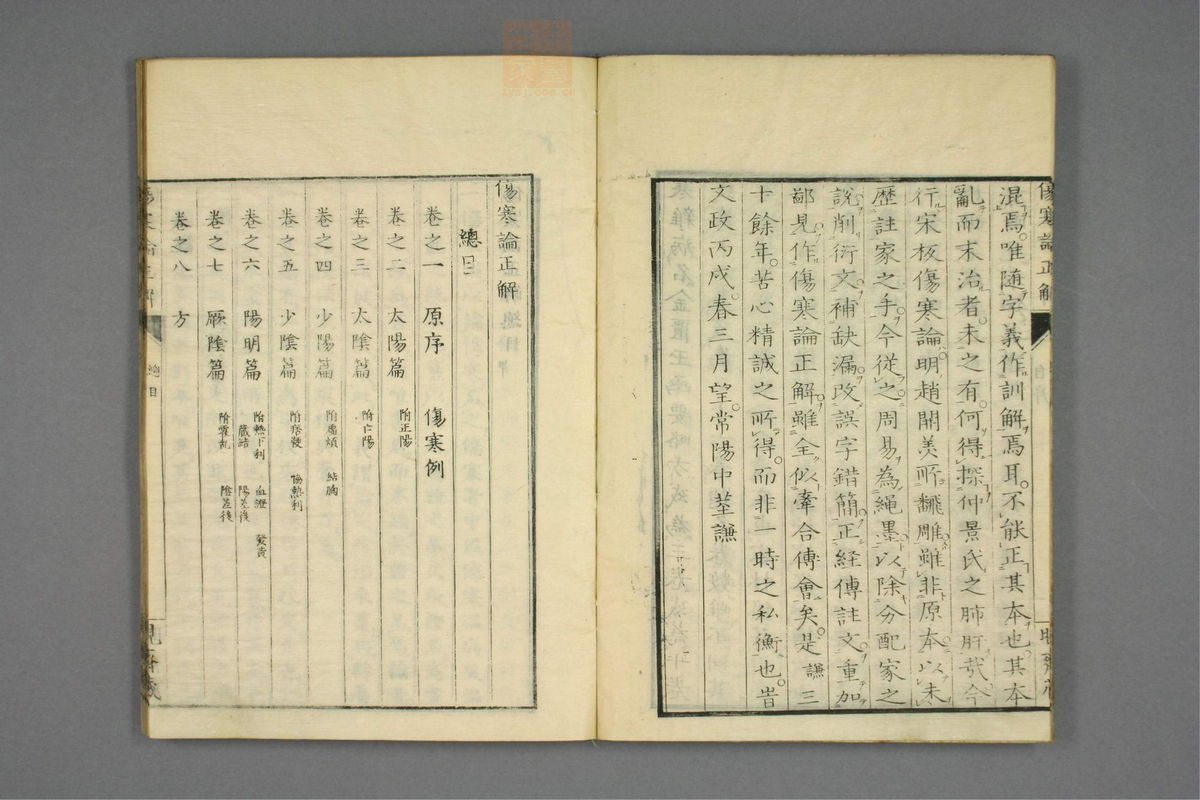 傷寒論正解
混焉唯随字義作訓解焉耳不能正其本也其本
亂而末治者未之有何得探仲景氏之肺肝哉今
行宋板傷寒論明趙開美所飜雕雖非原本以未
歷註家之手今從之周易為繩墨以除分配家之
說削衍文補缺漏改誤字錯簡正経傳註文重加
鄙見作傷寒論正解雖全似牽合傳會矣是謙三
十餘年苦心精誠之所得而非一時之私衡也旹
文政丙戌春三月望常陽中莖謙
傷寒論正解
總目
卷之一 原序 傷寒例
卷之二 太陽篇 附正陽
卷之三 太陰篇 附亡陽
卷之四 少陽篇 附虛煩 結胸
卷之五 少陰篇 附痞鞕 協熱利
卷之六 陽明篇 附熱下利 血證 發黃
藏結 陽差後
卷之七 厥陰篇 附霍乱 陰差後
卷之八 方
總目